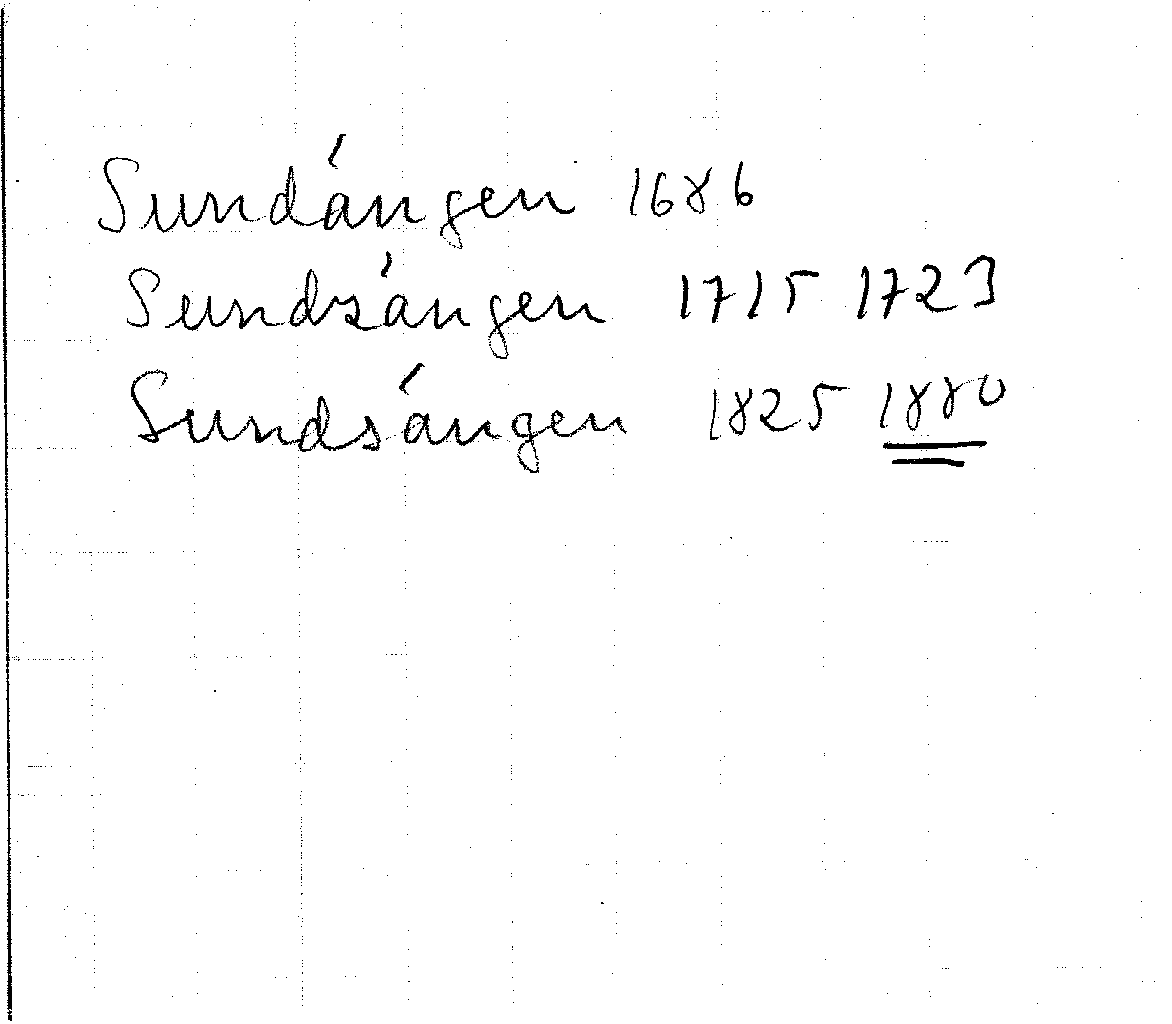 Sundángen 1686
Sundsángen 1715 1723
Sundsángen 1825 1880